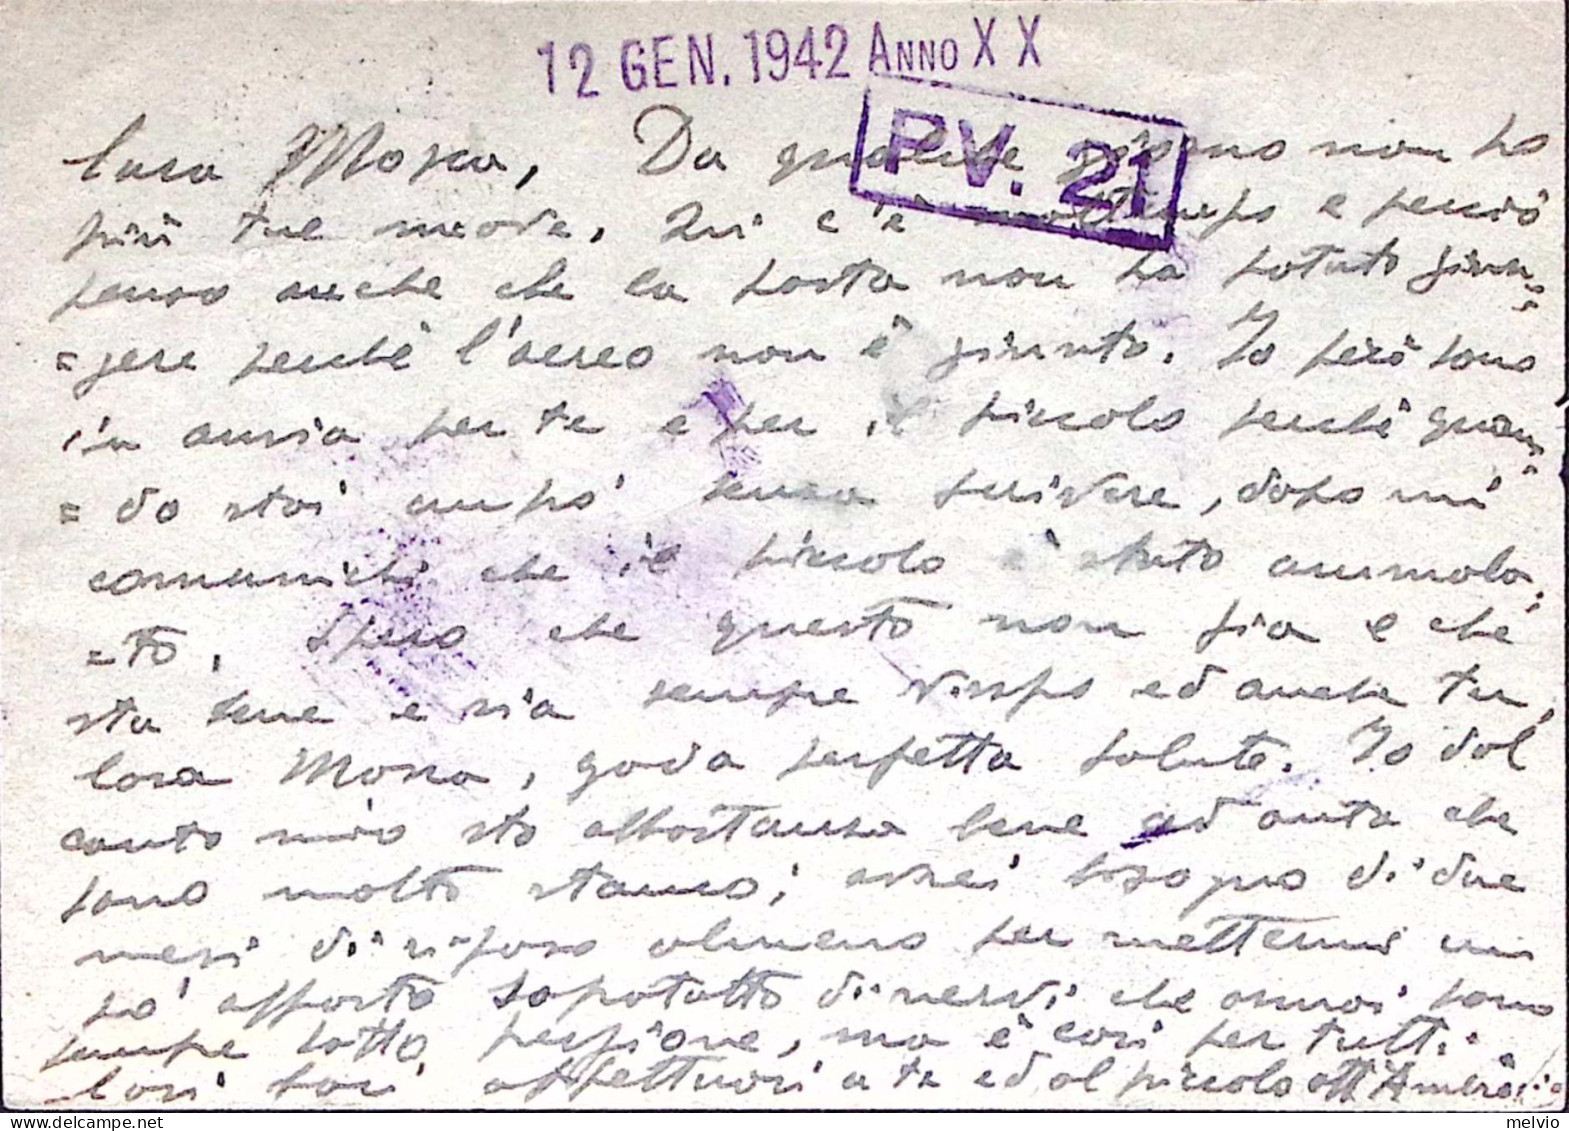 12 GEN. 1942 ANNO XX
PV. 21
Cara Mosca, Da qualche giorno non ho
più tue nuove. Qui c'è maltempo e perciò
penso anche che la posta non ha potuto giun=
=gere perchè l'aereo non è giunto. Io però sono
in ansia per te e per il piccolo perchè quan=
=do stai un pò senza scrivere, dopo mi
comunichi che il piccolo è stato ammala=
=to. Spero che questo non sia e che
sta bene e sia sempre vispo ed anche tu,
Cara Mosca, goda perfetta salute. Io dal
canto mio sto abbastanza bene ad onta che
sono molto stanco; avrei bisogno di due
mesi di riposo almeno per mettermi un
pò apposto sopratutto di nervi che ormai sono
sempre sotto pressione, ma è così per tutti.
Cari baci affettuosi a te ed al piccolo
melvio